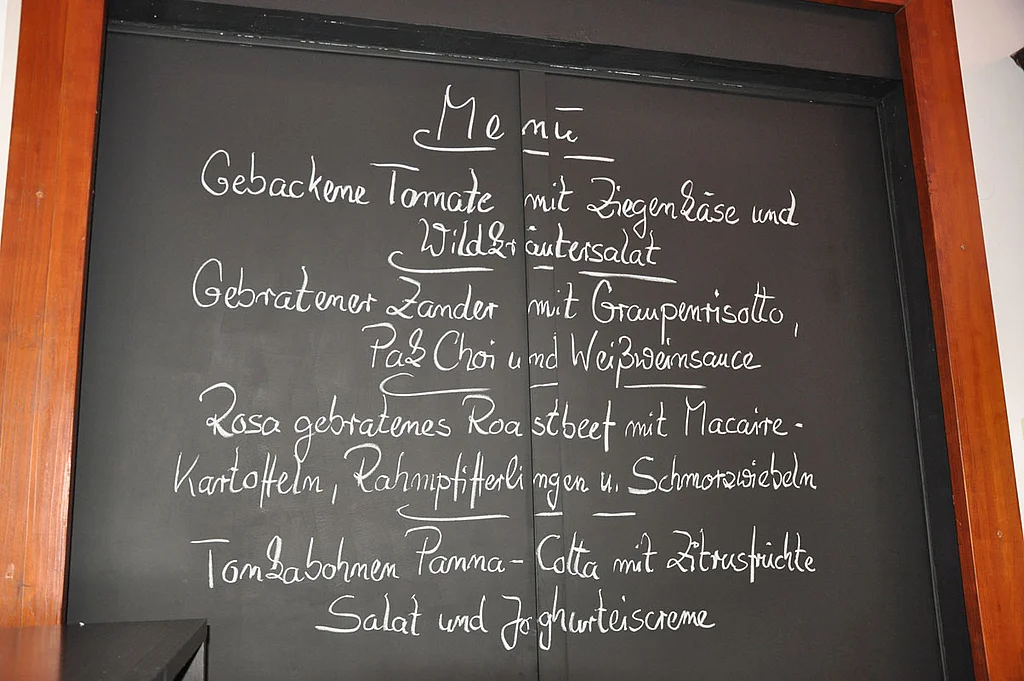 Menü
Gebackene Tomate mit Ziegenkäse und
Wildkräutersalat
Gebratener Zander mit Graupenrisotto,
Pak Choi und Weißweinsauce
Rosa gebratenes Roastbeef mit Macaire-
Kartoffeln, Rahmpfifferlingen u. Schmorzwiebeln
Tonkabohnen Panna-Cotta mit Zitrusfrüchte
Salat und Joghurteiscreme